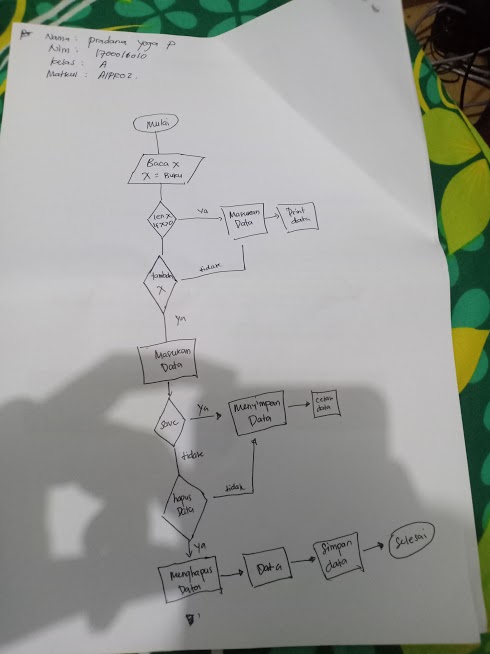 Nama : pradana yoga P
Nim : 1700016010
kelas : A
Matkul : AlPRO2.
Mulai
Baca X
X = Buku
len X
ya
Masukan
Data
Print
data
tambah
X
tidak
ya
Masukan
Data
Save
Ya
Menyimpan
Data
Cetak
data
tidak
hapus
Data
tidak
ya
Menghapus
Data
Data
Simpan
data
Selesai